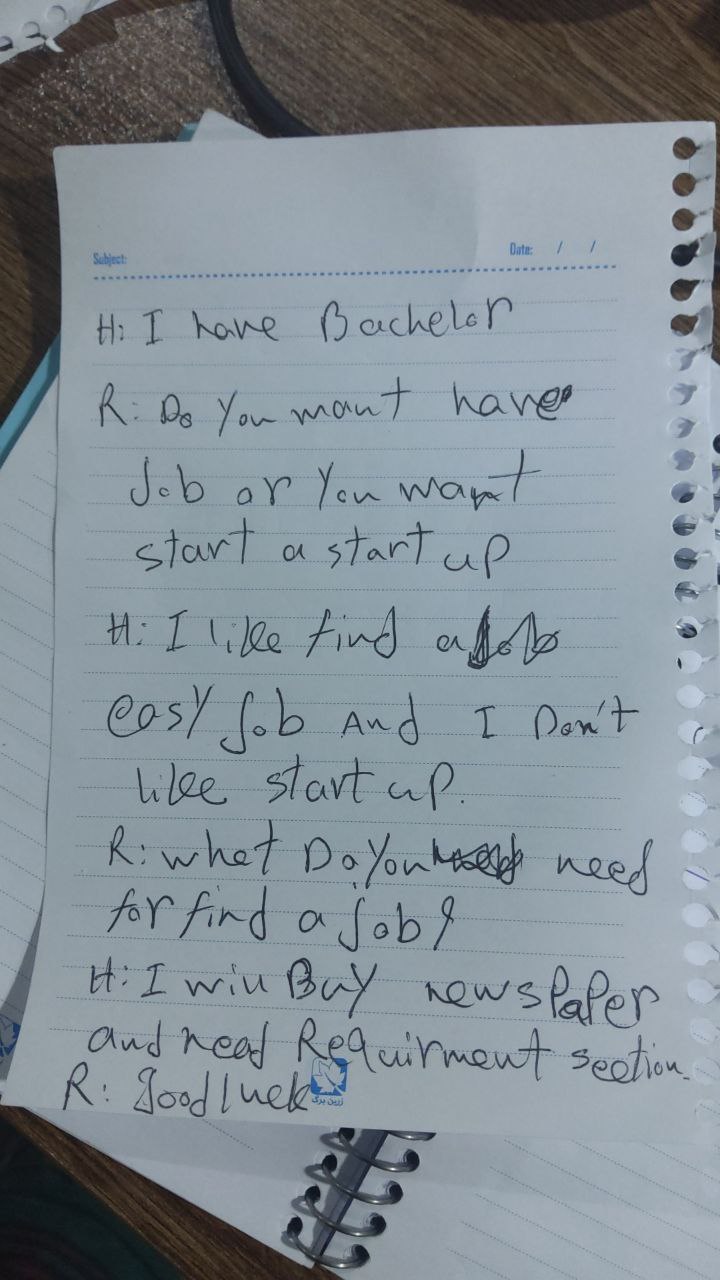 Subject:
Date: / /
H: I have Bachelor
R: Do You want have
Job or You want
start a start up
H: I like find a
easy Job And I Don't
like start up.
R: what Do You need
for find a Job?
H: I will Buy newspaper
and need Requirment section.
R: good luck
زرین برگ